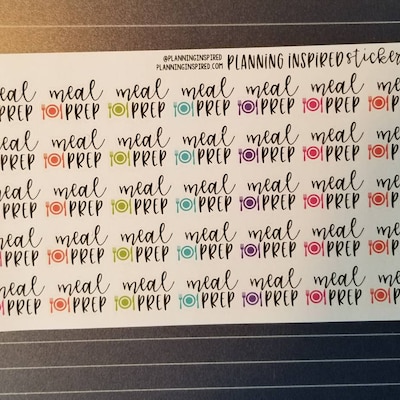 @PLANNINGINSPIRED
PLANNINGINSPIRED.COM
PLANNING INSPIRED stickers
meal meal meal meal meal meal meal
PREP PREP PREP PREP PREP PREP PREP
meal meal meal meal meal meal meal
PREP PREP PREP PREP PREP PREP PREP
meal meal meal meal meal meal meal
PREP PREP PREP PREP PREP PREP PREP
meal meal meal meal meal meal meal
PREP PREP PREP PREP PREP PREP PREP
meal meal meal meal meal meal meal
PREP PREP PREP PREP PREP PREP PREP